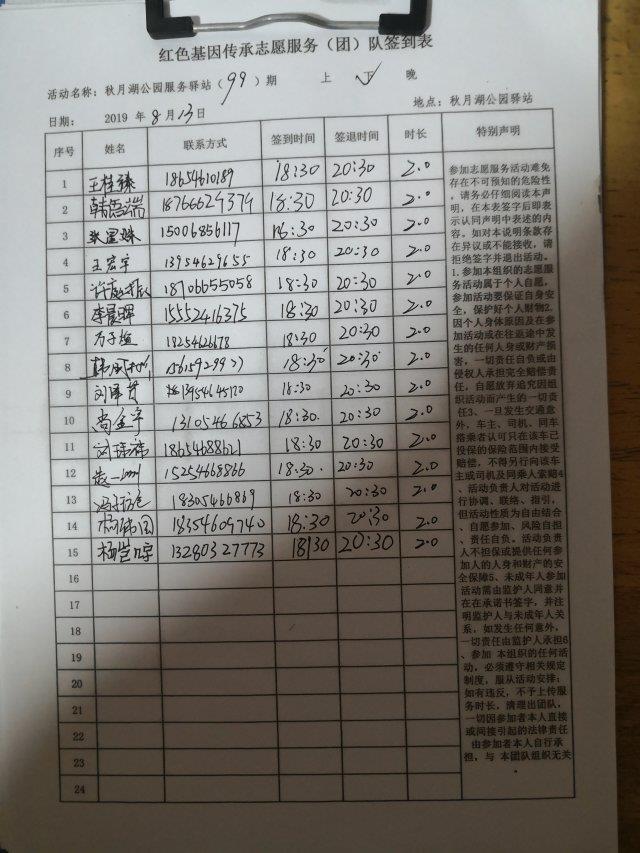 红色基因传承志愿服务（团）队签到表
活动名称：秋月湖公园服务驿站（99）期 上 下 晚
日期： 2019 年 8 月 13 日 地点：秋月湖公园驿站
序号 姓名 联系方式 签到时间 签退时间 时长 特别声明
1 18654610189 18:30 20:30 2.0
2 18:30 20:30 2.0
3 15006856117 18:30 20:30 2.0
4 王宏宇 13954629655 18:30 20:30 2.0
5 18706655058 18:30 20:30 2.0
6 李晨晖 15552416375 18:30 20:30 2.0
7 18:30 20:30 2.0
8 18:30 20:30 2.0
9 18:30 20:30 2.0
10 13105466853 18:30 20:30 2.0
11 18654688621 18:30 20:30 2.0
12 15254668866 18:30 20:30 2.0
13 18305466869 18:30 20:30 2.0
14 18354609740 18:30 20:30 2.0
15 13280327773 18:30 20:30 2.0
16
17
18
19
20
21
22
23
24
参加志愿服务活动难免
存在不可预知的危险性
，请务必仔细阅读本声
明，在本表签字后即表
示认同声明中表述的内
容。如对本说明条款存
在异议或不能接收，请
拒绝签字并退出活动。
1.参加本组织的志愿服
务活动属于个人自愿，
参加活动要保证自身安
全，保护好个人财物2.
因个人身体原因及在参
加活动或在往返途中发
生的任何人身或财产损
害，一切责任自负或由
侵权人承担完全赔偿责
任，自愿放弃追究因组
织活动而产生的一切责
任3、一旦发生交通意
外，车主、司机、同车
搭乘者认可只在该车已
投保的保险范围内接受
赔偿，不得另行向该车
主或司机及同乘人索赔4
、活动负责人对活动进
行协调、联络、指引，
但活动性质为自由结合
、自愿参加、风险自担
、责任自负。活动负责
人不担保或提供任何参
加人的人身和财产的安
全保障5、未成年人参加
活动需由监护人同意并
在在承诺书签字，并注
明监护人与未成年人关
系，如发生任何意外，
一切责任由监护人承担6
、参加 本组织的任何活
动，必须遵守相关规定
制度，服从活动安排；
如有违反，不予上传服
务时长，清理出团队，
一切因参加者本人直接
或间接引起的法律责任
由参加者本人自行承
担，与 本团队组织无关